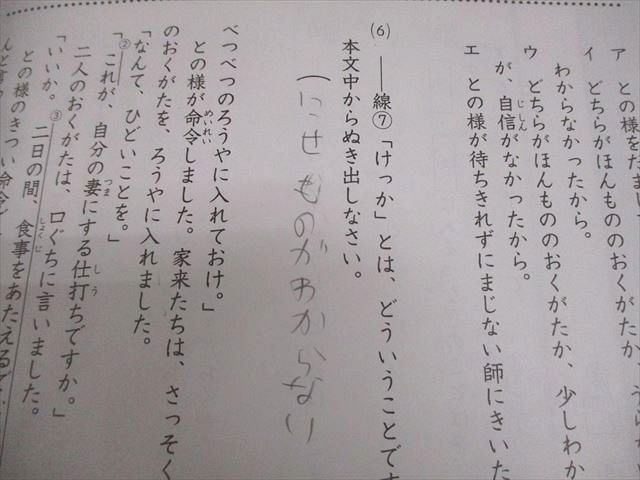 ア との様をだまし
イ どちらがほんもののおくがたか、うら
わからなかったから。
ウ どちらがほんもののおくがたか、少しわか
が、自信がなかったから。
エ との様が待ちきれずにまじない師にきいた
(6) ――線⑦「けっか」とは、どういうことです
本文中からぬき出しなさい。
(にせものがわからない
べつべつのろうやに入れておけ。」
との様が命令しました。家来たちは、さっそく
のおくがたを、ろうやに入れました。
「なんて、ひどいことを。」
「②これが、自分の妻にする仕打ちですか。」
二人のおくがたは、口ぐちに言いました。
「いいか。③二日の間、食事をあたえるな
との様のきつい命令